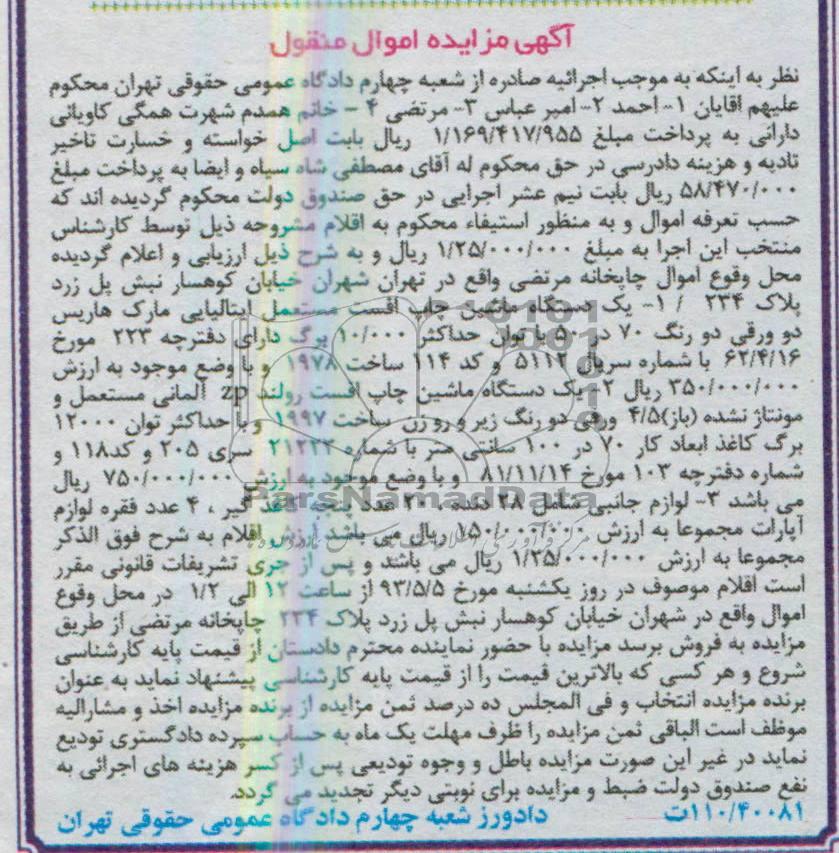 آگهی مزایده اموال منقول
نظر به اینکه به موجب اجرائیه صادره از شعبه چهارم دادگاه عمومی حقوقی تهران محکوم
علیهم آقایان ۱- احمد ۲- امیر عباس ۳- مرتضی ۴ – خانم همدم شهرت همگی کاویانی
دارانی به پرداخت مبلغ ۱/۱۶۹/۴۱۷/۹۵۵ ریال بابت اصل خواسته و خسارت تاخیر
تادیه و هزینه دادرسی در حق محکوم له آقای مصطفی شاه سیاه و ایضا به پرداخت مبلغ
۵۸/۴۷۰/۰۰۰ ریال بابت نیم عشر اجرایی در حق صندوق دولت محکوم گردیده اند که
حسب تعرفه اموال و به منظور استیفاء محکوم به اقلام مشروحه ذیل توسط کارشناس
منتخب این اجرا به مبلغ ۱/۲۵/۰۰۰/۰۰۰ ریال و به شرح ذیل ارزیابی و اعلام گردیده
محل وقوع اموال چاپخانه مرتضی واقع در تهران شهران خیابان کوهسار نبش پل زرد
پلاک ۲۳۴ / ۱- یک دستگاه ماشین چاپ افست مستعمل ایتالیایی مارک هاریس
دو ورقی دو رنگ ۷۰ در ۵۰ با توان حداکثر ۱۰/۰۰۰ برگ دارای دفترچه ۲۲۳ مورخ
۶۲/۴/۱۶ با شماره سریال ۵۱۱۲ و کد ۱۱۴ ساخت ۱۹۷۸ و با وضع موجود به ارزش
۳۵۰/۰۰۰/۰۰۰ ریال ۲- یک دستگاه ماشین چاپ افست رولند zp آلمانی مستعمل و
مونتاژ نشده (باز) ۴/۵ ورقی دو رنگ زیر و رو زن ساخت ۱۹۹۷ و با حداکثر توان ۱۲۰۰۰
برگ کاغذ ابعاد کار ۷۰ در ۱۰۰ سانتی متر با شماره ۲۱۲۲۲ سری ۲۰۵ و کد ۱۱۸ و
شماره دفترچه ۱۰۳ مورخ ۸۱/۱۱/۱۴ و با وضع موجود به ارزش ۷۵۰/۰۰۰/۰۰۰ ریال
می باشد ۳- لوازم جانبی شامل ۲۸ دنده ، ۲۰ عدد پنجه کاغذ گیر ، ۴ عدد فقره لوازم
آپارات مجموعا به ارزش ۱۵۰/۰۰۰/۰۰۰ ریال می باشد ارزش اقلام به شرح فوق الذکر
مجموعا به ارزش ۱/۲۵/۰۰۰/۰۰۰ ریال می باشند و پس از جری تشریفات قانونی مقرر
است اقلام موصوف در روز یکشنبه مورخ ۹۳/۵/۵ از ساعت ۱۲ الی ۱/۲ در محل وقوع
اموال واقع در شهران خیابان کوهسار نبش پل زرد پلاک ۲۳۴ چاپخانه مرتضی از طریق
مزایده به فروش برسد مزایده با حضور نماینده محترم دادستان از قیمت پایه کارشناسی
شروع و هر کسی که بالاترین قیمت را از قیمت پایه کارشناسی پیشنهاد نماید به عنوان
برنده مزایده انتخاب و فی المجلس ده درصد ثمن مزایده از برنده مزایده اخذ و مشارالیه
موظف است الباقی ثمن مزایده را ظرف مهلت یک ماه به حساب سپرده دادگستری تودیع
نماید در غیر این صورت مزایده باطل و وجوه تودیعی پس از کسر هزینه های اجرائی به
نفع صندوق دولت ضبط و مزایده برای نوبتی دیگر تجدید می گردد.
۱۱۰/۴۰۰۸۱ت دادورز شعبه چهارم دادگاه عمومی حقوقی تهران
ParsNamadData